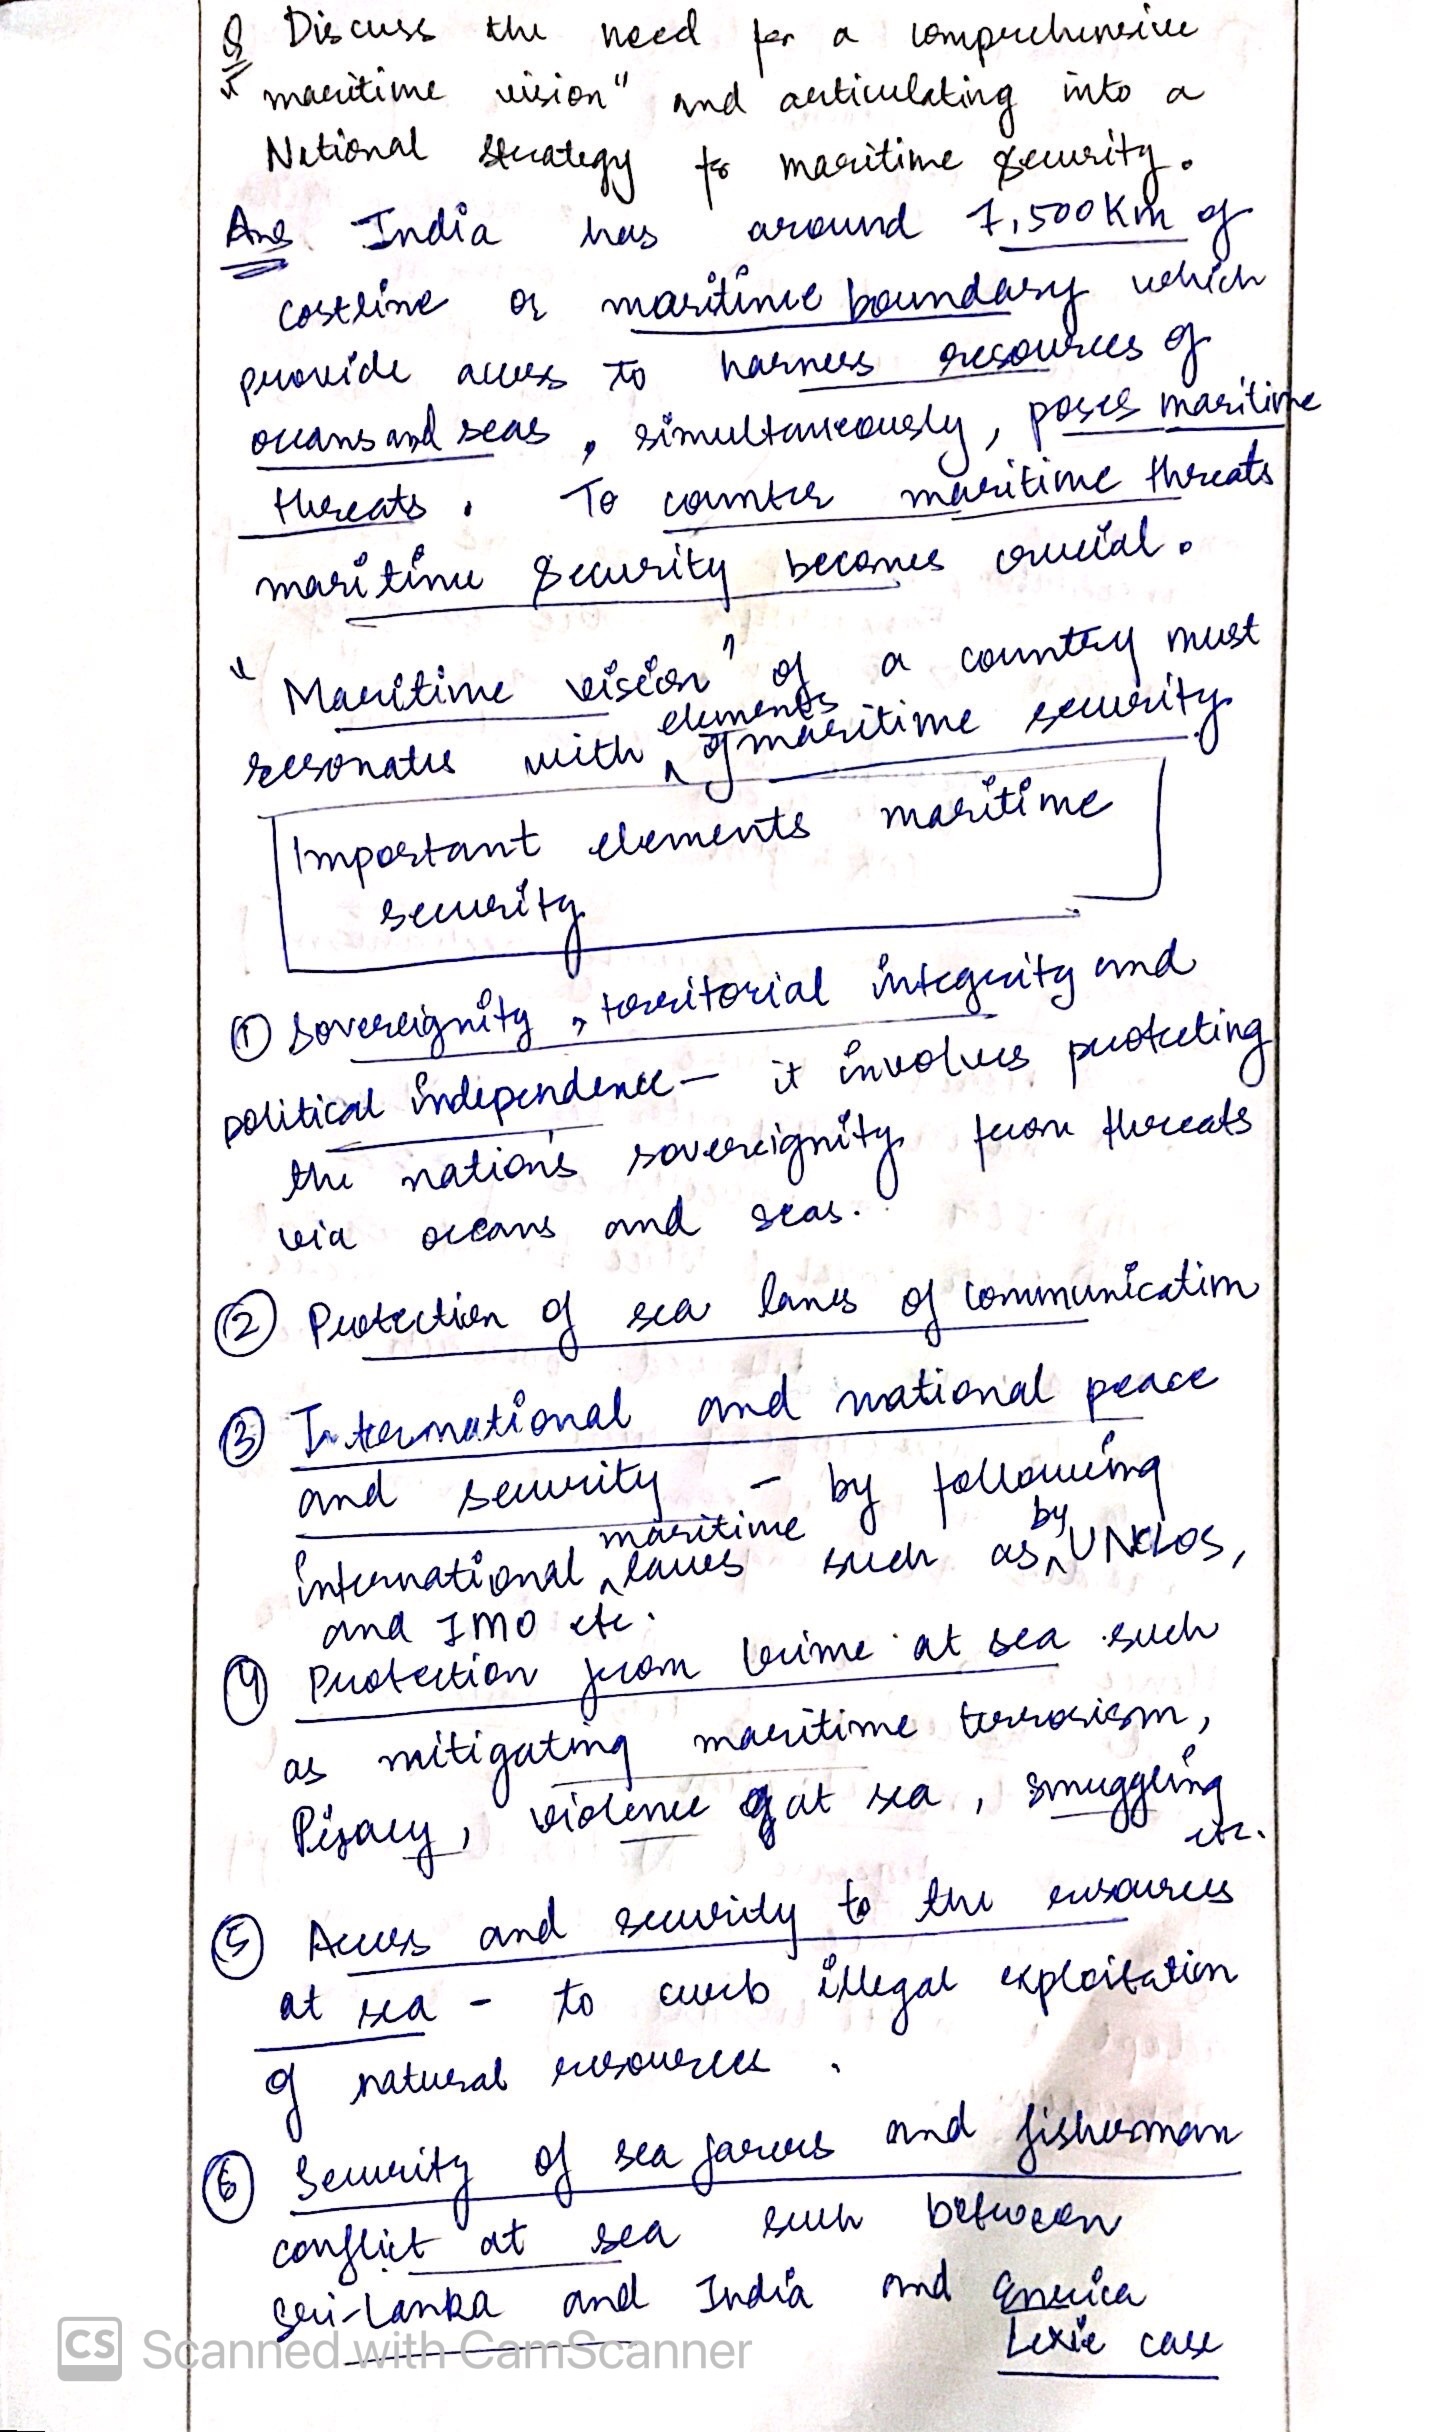 Q Discuss the need for a comprehensive
maritime vision" and articulating into a
National strategy for maritime security.
Ans. India has around 7,500 Km of
costline or maritime boundary which
provide access to harness resources of
oceans and seas, simultaneously, poses maritime
threats. To counter maritime threats
maritime security becomes crucial.
"Maritime vision" of a country must
elements
resonates with ^ of maritime security
Important elements maritime
security
① Sovereignity, territorial integrity and
political independence — it involves protecting
the nation's sovereignity from threats
via oceans and seas.
② Protection of sea lanes of communication
③ International and national peace
and security - by following
maritime by
international ^ laws such as ^ UNCLOS,
and IMO etc.
④ Protection from crime at sea such
as mitigating maritime terrorism,
Piracy, violence at sea, smuggling
etc.
⑤ Access and security to the resources
at sea - to curb illegal exploitation
of natural resources.
⑥ Security of sea farers and fisherman
conflict at sea such between
Sri-Lanka and India and Enrica
Lexie case
CS Scanned with CamScanner